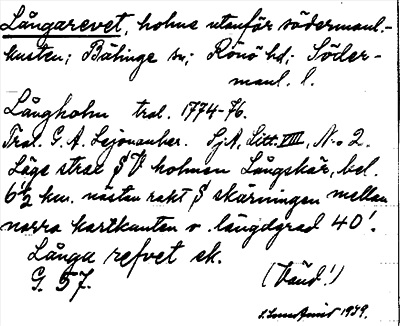 Långarevet, holme utanför södermanl.-
kusten; Bälinge sn; Rönö hd; Söder-
manl. l.
Långholm tral. 1774-76.
Tral. G. A. Lejonanker. SjA, Litt. VIII, N:o 2.
Läge strax S V holmen Långskär, bel.
6 1/2 km. nästan rakt S skärningen mellan
norra kartkanten o. längdgrad 40'.
Långa refvet sk.
G. 57. (Vänd!)
1939.